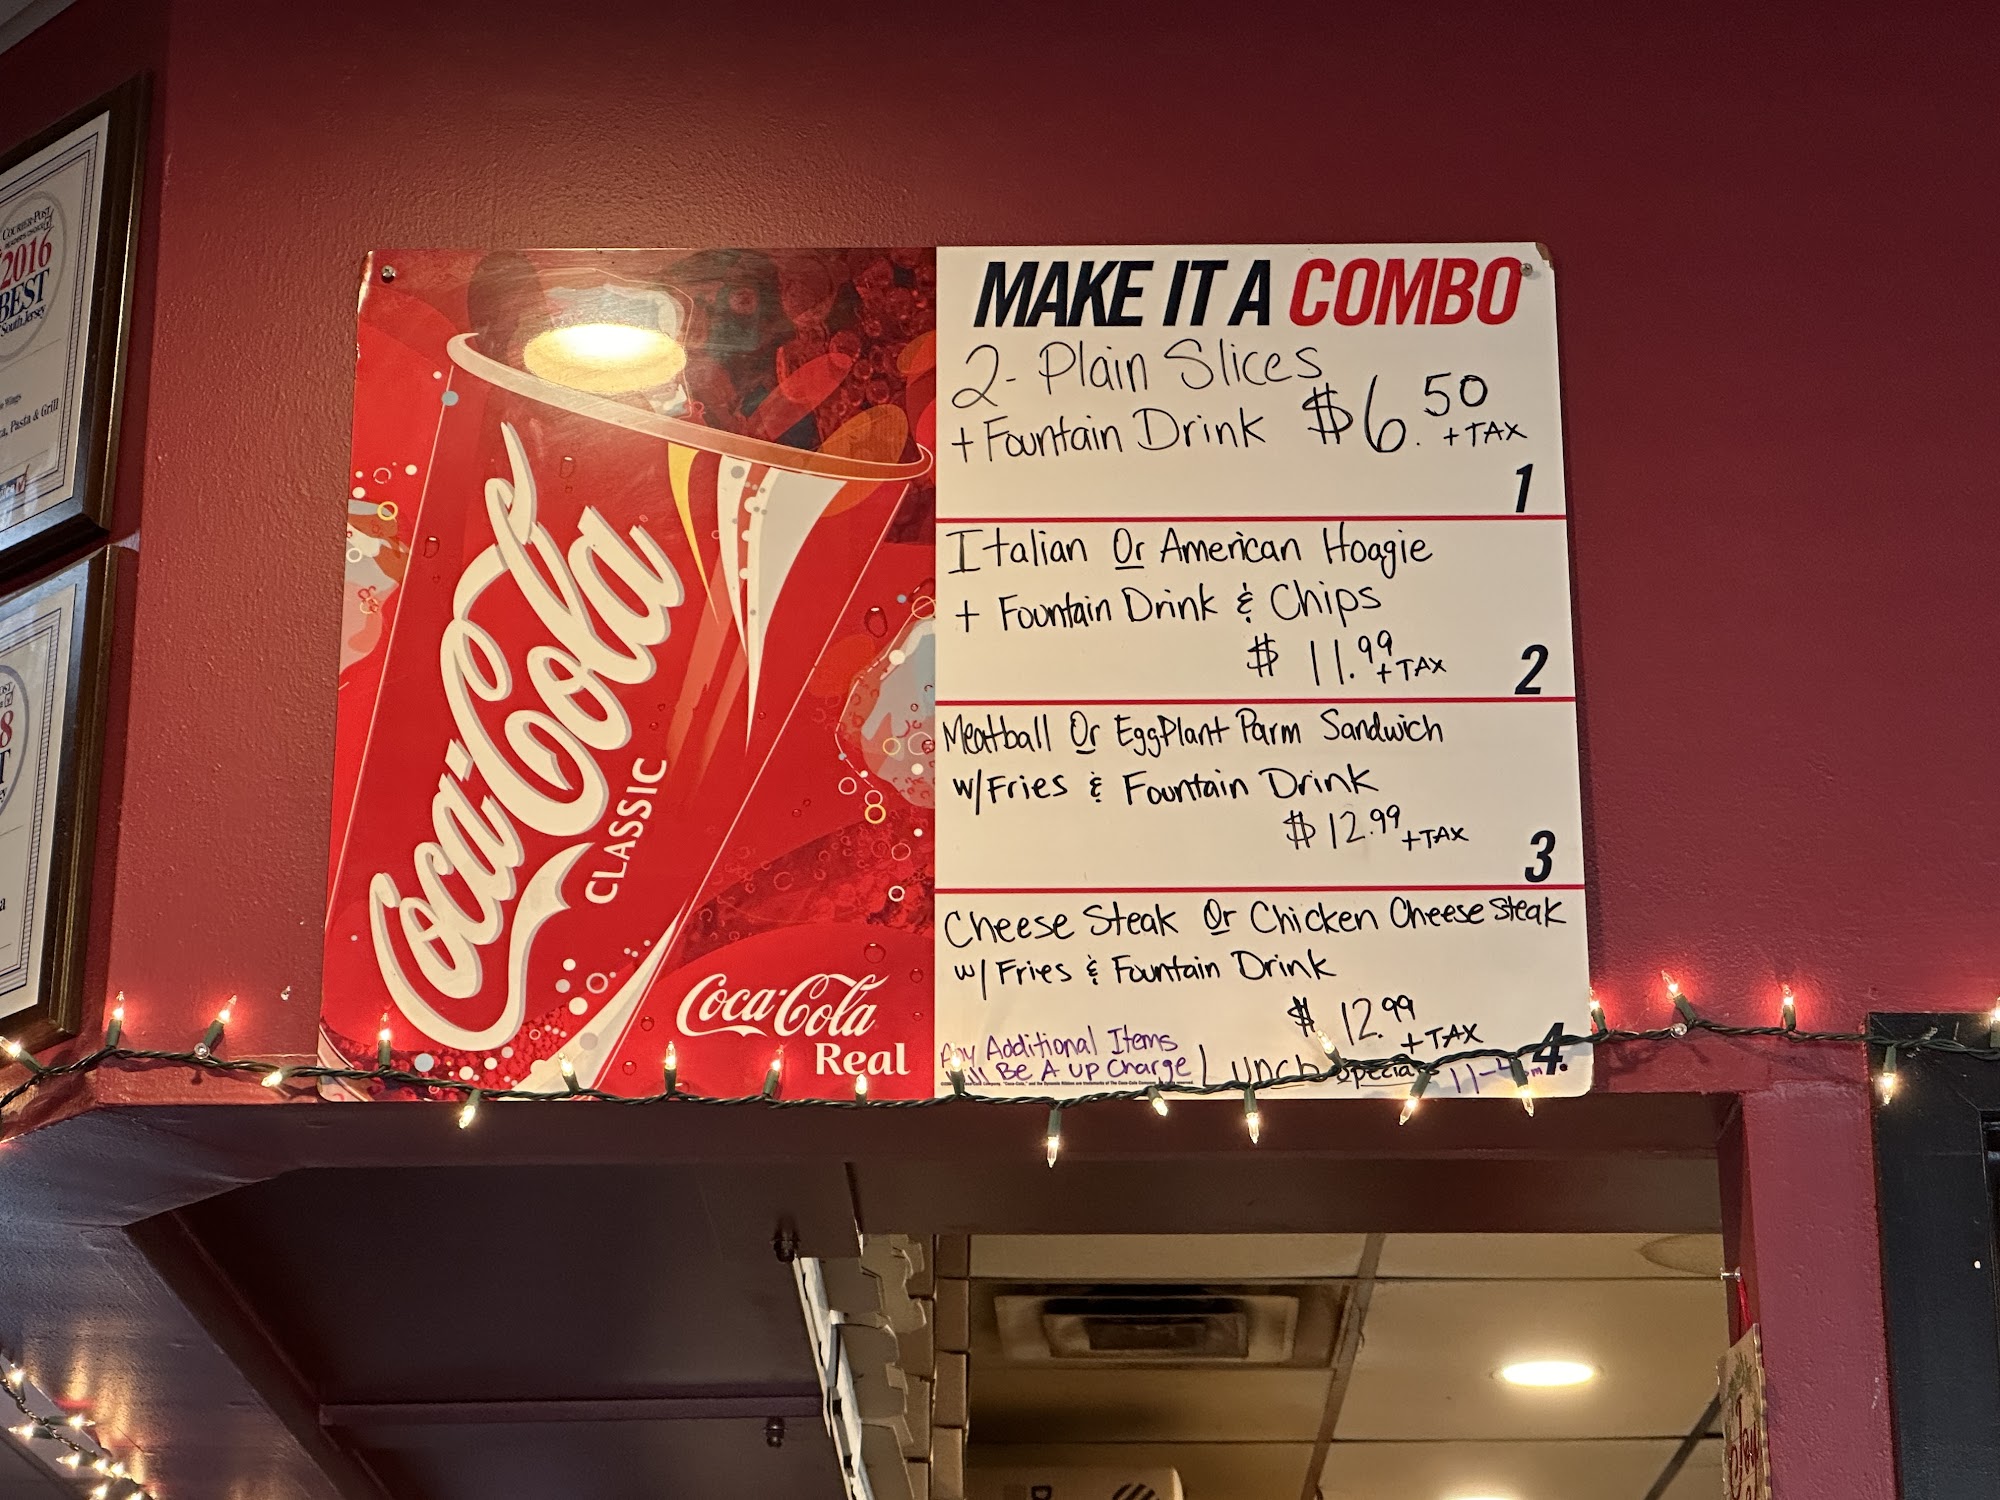 COURIER-POST
2016
BEST
South Jersey
Wings
Pasta & Grill
8
Coca-Cola
CLASSIC
Coca-Cola
Real
MAKE IT A COMBO
2- Plain Slices
+ Fountain Drink $6.50
+TAX
1
Italian Or American Hoagie
+ Fountain Drink & Chips
$ 11.99
+TAX
2
Meatball Or EggPlant Parm Sandwich
w/Fries & Fountain Drink
$12.99 +TAX
3
Cheese Steak Or Chicken Cheese Steak
w/ Fries & Fountain Drink
$ 12.99
+TAX
4
Any Additional Items
Will Be A up Charge
Lunch Specials 11-4pm